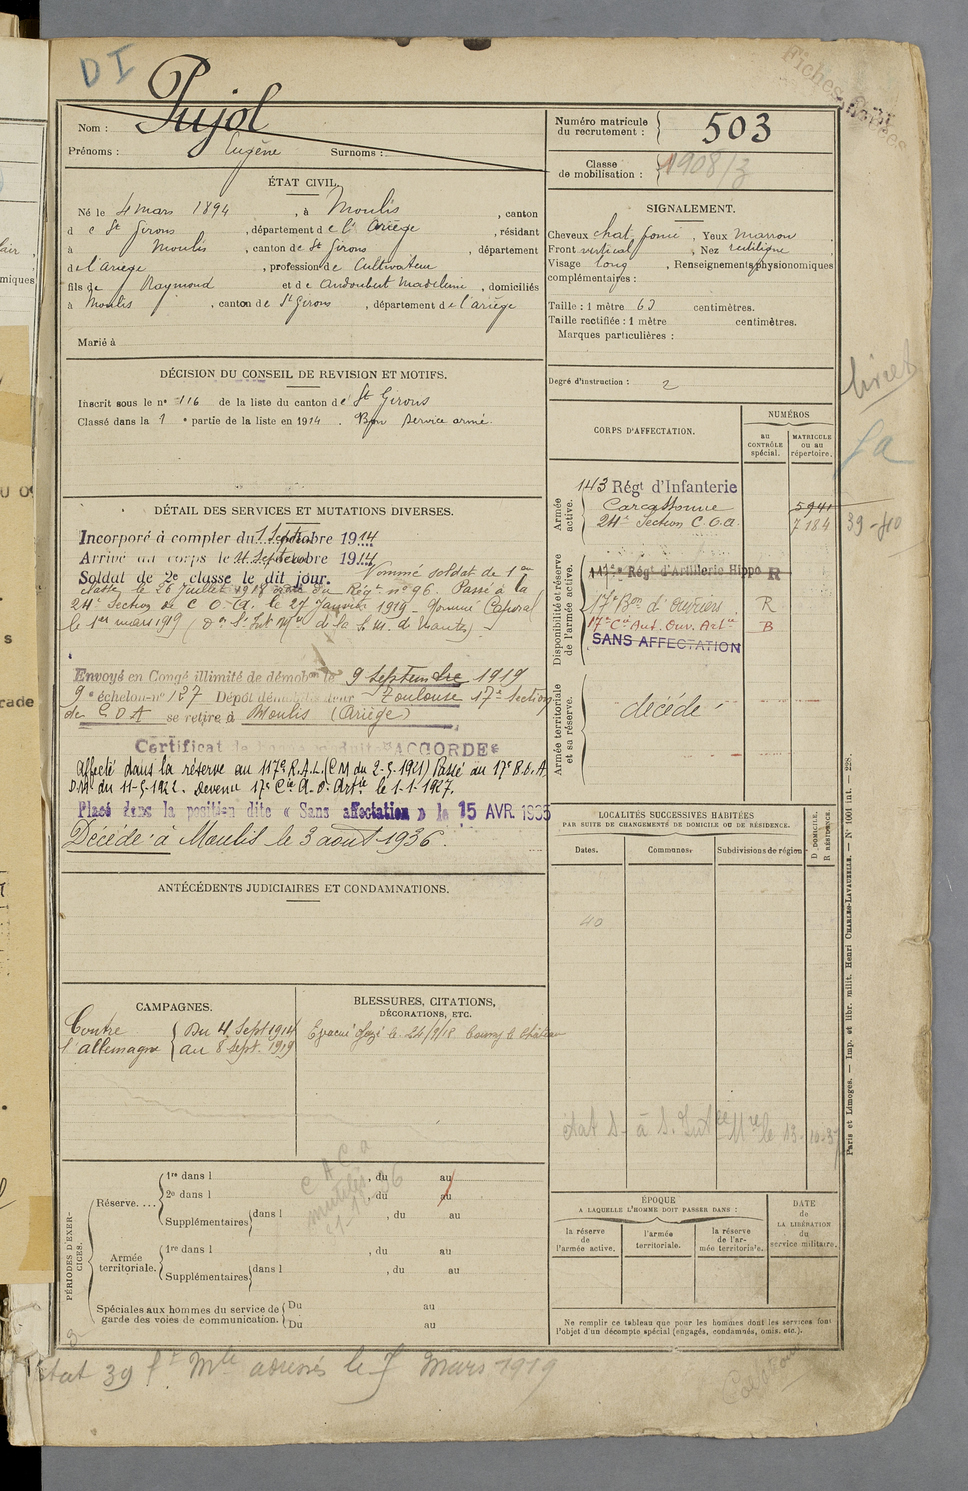 DI
Pujol
Nom :
Prénoms : Eugène Surnoms :
ÉTAT CIVIL.
Né le 4 mars 1894, à Moulis, canton
de St Girons, département de l'Ariège, résidant
à Moulis, canton de St Girons, département
de l'Ariège, profession de Cultivateur
fils de Raymond et de Audoubert Madeleine, domiciliés
à Moulis, canton de St Girons, département de l'Ariège
Marié à
DÉCISION DU CONSEIL DE REVISION ET MOTIFS.
Inscrit sous le n° 116 de la liste du canton de St Girons
Classé dans la 1e partie de la liste en 1914. Bon service armé.
DÉTAIL DES SERVICES ET MUTATIONS DIVERSES.
Incorporé à compter du 1 Septbre 1914
Arrivé au corps le 4 Septembre 1914
Soldat de 2e classe le dit jour. Nommé soldat de 1ère
classe le 26 juillet 1918 du Régt n° 96. Passé à la
24e Section de C.O.A. le 27 Janvier 1919 - Nommé Caporal
le 1er mars 1919 (Don S. Int Mre de la S. M. de Nantes)
Envoyé en Congé illimité de démobon le 9 Septembre 1919
9e échelon n° 127 Dépôt démobilisateur Toulouse 17e Section
de COA se retire à Moulis (Ariège)
Certificat de bonne conduite "ACCORDÉ"
Affecté dans la réserve au 117e R.A.L. (CM du 2-5-1921) Passé au 17e B.O.A.
D.M. du 11-5-1922. Devenu 17e Cie A.O. Artie le 1-1-1927.
Placé dans la position dite « Sans affectation » le 15 AVR. 1935
Décédé à Moulis le 3 août 1936.
ANTÉCÉDENTS JUDICIAIRES ET CONDAMNATIONS.
CAMPAGNES.
Contre l'allemagne
Du 4 Sept 1914
au 8 Sept. 1919
BLESSURES, CITATIONS,
DÉCORATIONS, ETC.
Evacué gazé le 24/9/18
PÉRIODES D'EXERCICES.
Réserve....
1re dans l , du au
2e dans l , du au
Supplémentaires dans l , du au
Armée territoriale.
1re dans l , du au
Supplémentaires dans l , du au
Spéciales aux hommes du service de
garde des voies de communication.
Du au
Du au
Numéro matricule
du recrutement : 503
Classe
de mobilisation : 1908/3
SIGNALEMENT.
Cheveux chat. foncé, Yeux marron
Front vertical, Nez rectiligne
Visage long, Renseignements physionomiques
complémentaires :
Taille : 1 mètre 63 centimètres.
Taille rectifiée : 1 mètre centimètres.
Marques particulières :
Degré d'instruction : 2
CORPS D'AFFECTATION.
NUMÉROS
au CONTRÔLE spécial.
MATRICULE ou au répertoire.
Armée active.
143 Régt d'Infanterie
Carcassonne 5941
24e Section C.O.A. 7184
39-40
Disponibilité et réserve de l'armée active.
117e Régt d'Artillerie Hippo R
17e Bon d'Ouvriers R
17e Cie Aut. Ouv. Artie B
SANS AFFECTATION
Armée territoriale et sa réserve.
décédé
LOCALITÉS SUCCESSIVES HABITÉES
PAR SUITE DE CHANGEMENTS DE DOMICILE OU DE RÉSIDENCE.
Dates. Communes. Subdivisions de région
D DOMICILE.
R RÉSIDENCE.
40
ÉPOQUE
A LAQUELLE L'HOMME DOIT PASSER DANS :
la réserve de l'armée active.
l'armée territoriale.
la réserve de l'armée territoriale.
DATE
de
LA LIBÉRATION
du
service militaire.
Ne remplir ce tableau que pour les hommes dont les services font
l'objet d'un décompte spécial (engagés, condamnés, omis, etc.).
Paris et Limoges. — Imp. et libr. milit. Henri CHARLES-LAVAUZELLE. — N° 1061 int. — 228.
mars 1919